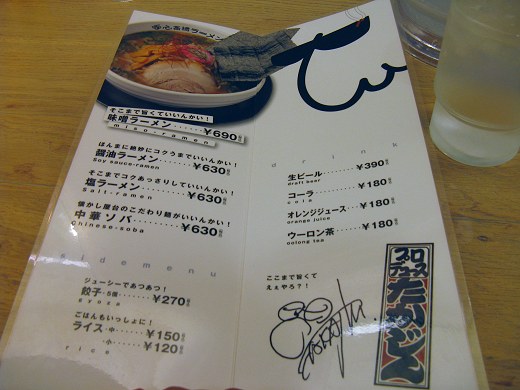 そこまで旨くていいんかい！
味噌ラーメン・・・・・・・¥690
miso-ramen
ほんまに絶妙にコクうまでいいんかい！
醤油ラーメン・・・・・・¥630
Soy sauce-ramen
そこまでコクあっさりしていいんかい！
塩ラーメン・・・・・・・・¥630
Salt-ramen
懐かし屋台のこだわり麺がいいんかい！
中華ソバ・・・・・・・・¥630
Chinese-soba
sidemenu
ジューシーであつあつ！
餃子・5個・・・・・¥270
gyoza
ごはんもいっしょに！
ライス・中・・・・¥150
・小・・・・¥120
rice
drink
生ビール・・・・・・・・・¥390
draft beer
コーラ・・・・・・・・・・¥180
cola
オレンジジュース・・・・¥180
orange juice
ウーロン茶・・・・・・・¥180
oolong tea
ここまで旨くて
ええやろ？！
プロデュース